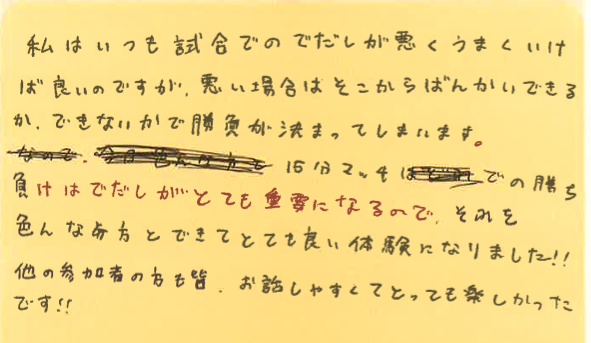 私はいつも試合でのでだしが悪くうまくいけ
ば良いのですが、悪い場合はそこからばんかいできる
か、できないかで勝負が決まってしまいます。
なので、 15分マッチ での勝ち
負けはでだしがとても重要になるので、それを
色んな方とできてとても良い体験になりました!!
他の参加者の方も皆、お話しやすくてとっても楽しかった
です!!